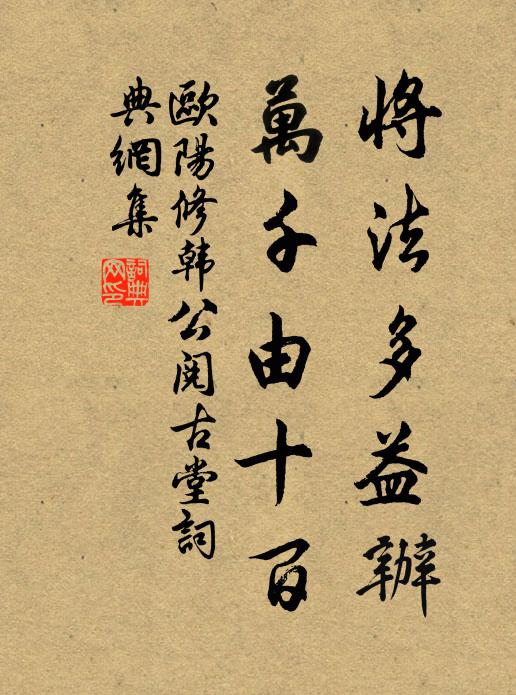 將法多益辦
萬千由十百
歐陽修韩公阅古堂詞
典網集
詞典
网印